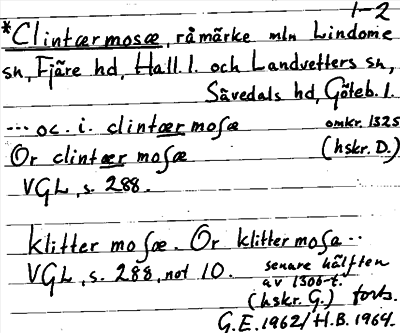 1-2
*Clintærmosæ, råmärke mln Lindome
sn, Fjäre hd, Hall. l. och Landvetters sn,
Sävedals hd, Göteb. l.
... oc. i. clintær moſæ omkr. 1325
Or clintær moſæ (hskr. D.)
VGL, s. 288.
klitter moſæ. Or klitter moſa...
VGL, s. 288, not 10. senare hälften
av 1300-t.
(hskr. G.) forts.
G.E. 1962/H.B. 1964.